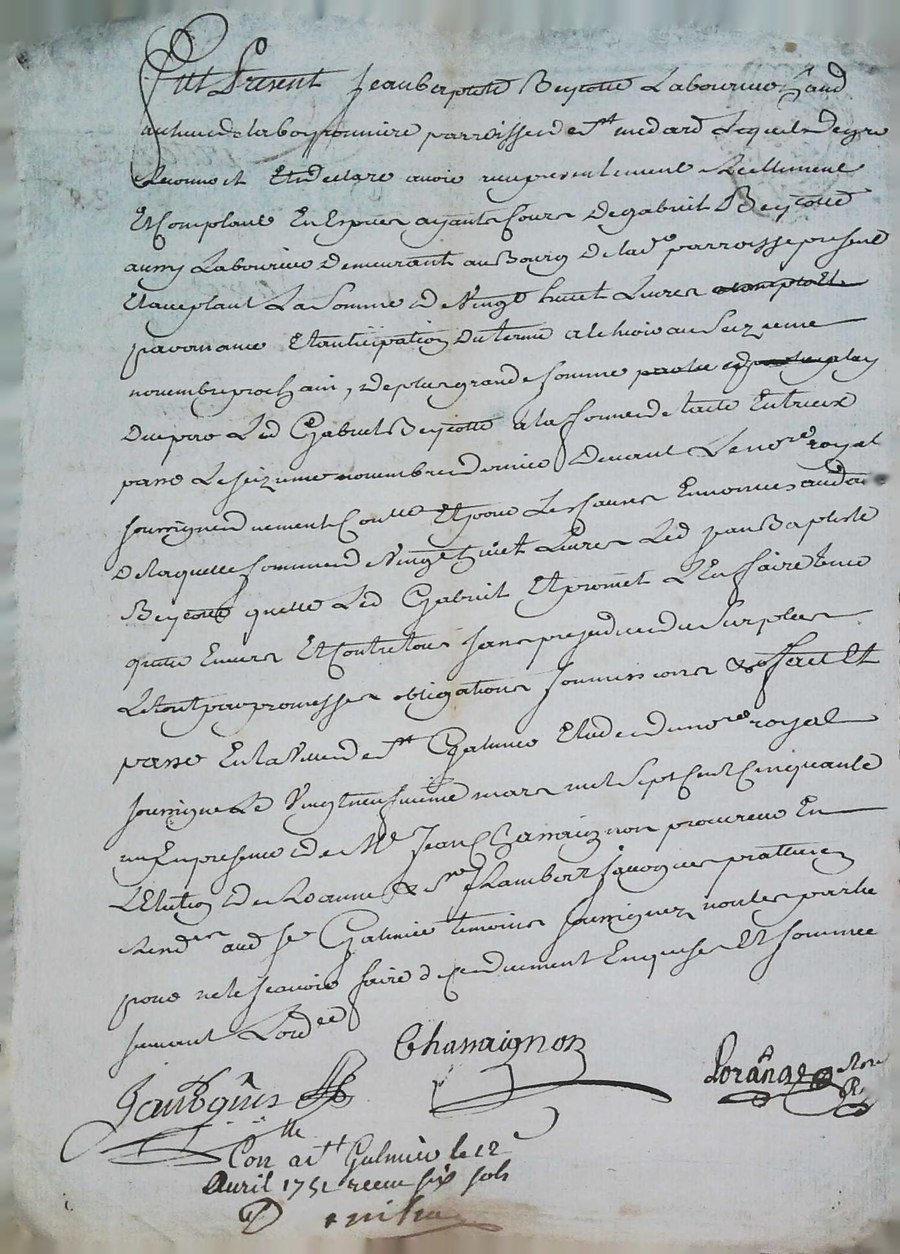 Fut Present Jean Baptiste Beycotte Laboureur hand
au lieu de la boyronniere parroisse de st medard Lequel de gre
Reconnoit Et declare avoir reçu presentement Reellement
Et Comptant En Especes ayants Cours De gabriel Beycotte
aussy Laboureur Demeurant au Bourg De lade parroisse present
Et acceptant La Somme de Vingt huict Livres
par avance Et anticipation Du terme a Echoir au Seizieme
novembre prochain, de plus grande somme
Due par Led Gabriel Beycotte a la forme de traité Entreux
passé Le seizieme novembre dernier Devant Le nore royal
soussigne duement Conlle Et pour Les Causes Ennoncées
De laquelle somme de Vingt huict Livres Led jean Baptiste
Beycotte quitte Led Gabriel Et promet L'En faire tenir
quitte Envers Et Contre tous sans prejudice du Surplus
Le tout par promesses obligations soumissions & fait Et
passé En la Ville de st Galmier Etude du nore royal
soussigne Le Vingt neufvieme mars mil Sept Cent Cinquante
un En presence de Me Jean Chassaignon procureur En
L'Election de Roanne & Sr Lambert Jacques praticien
Rend aud st Galmier temoins soussignez non les parties
pour ne le scavoir faire de ce duement Enquises Et sommées
suivant L'ordce
Chassaignon
Lorange Nore R.
Conlle a st Galmier le 12
Avril 1751 receu six sols